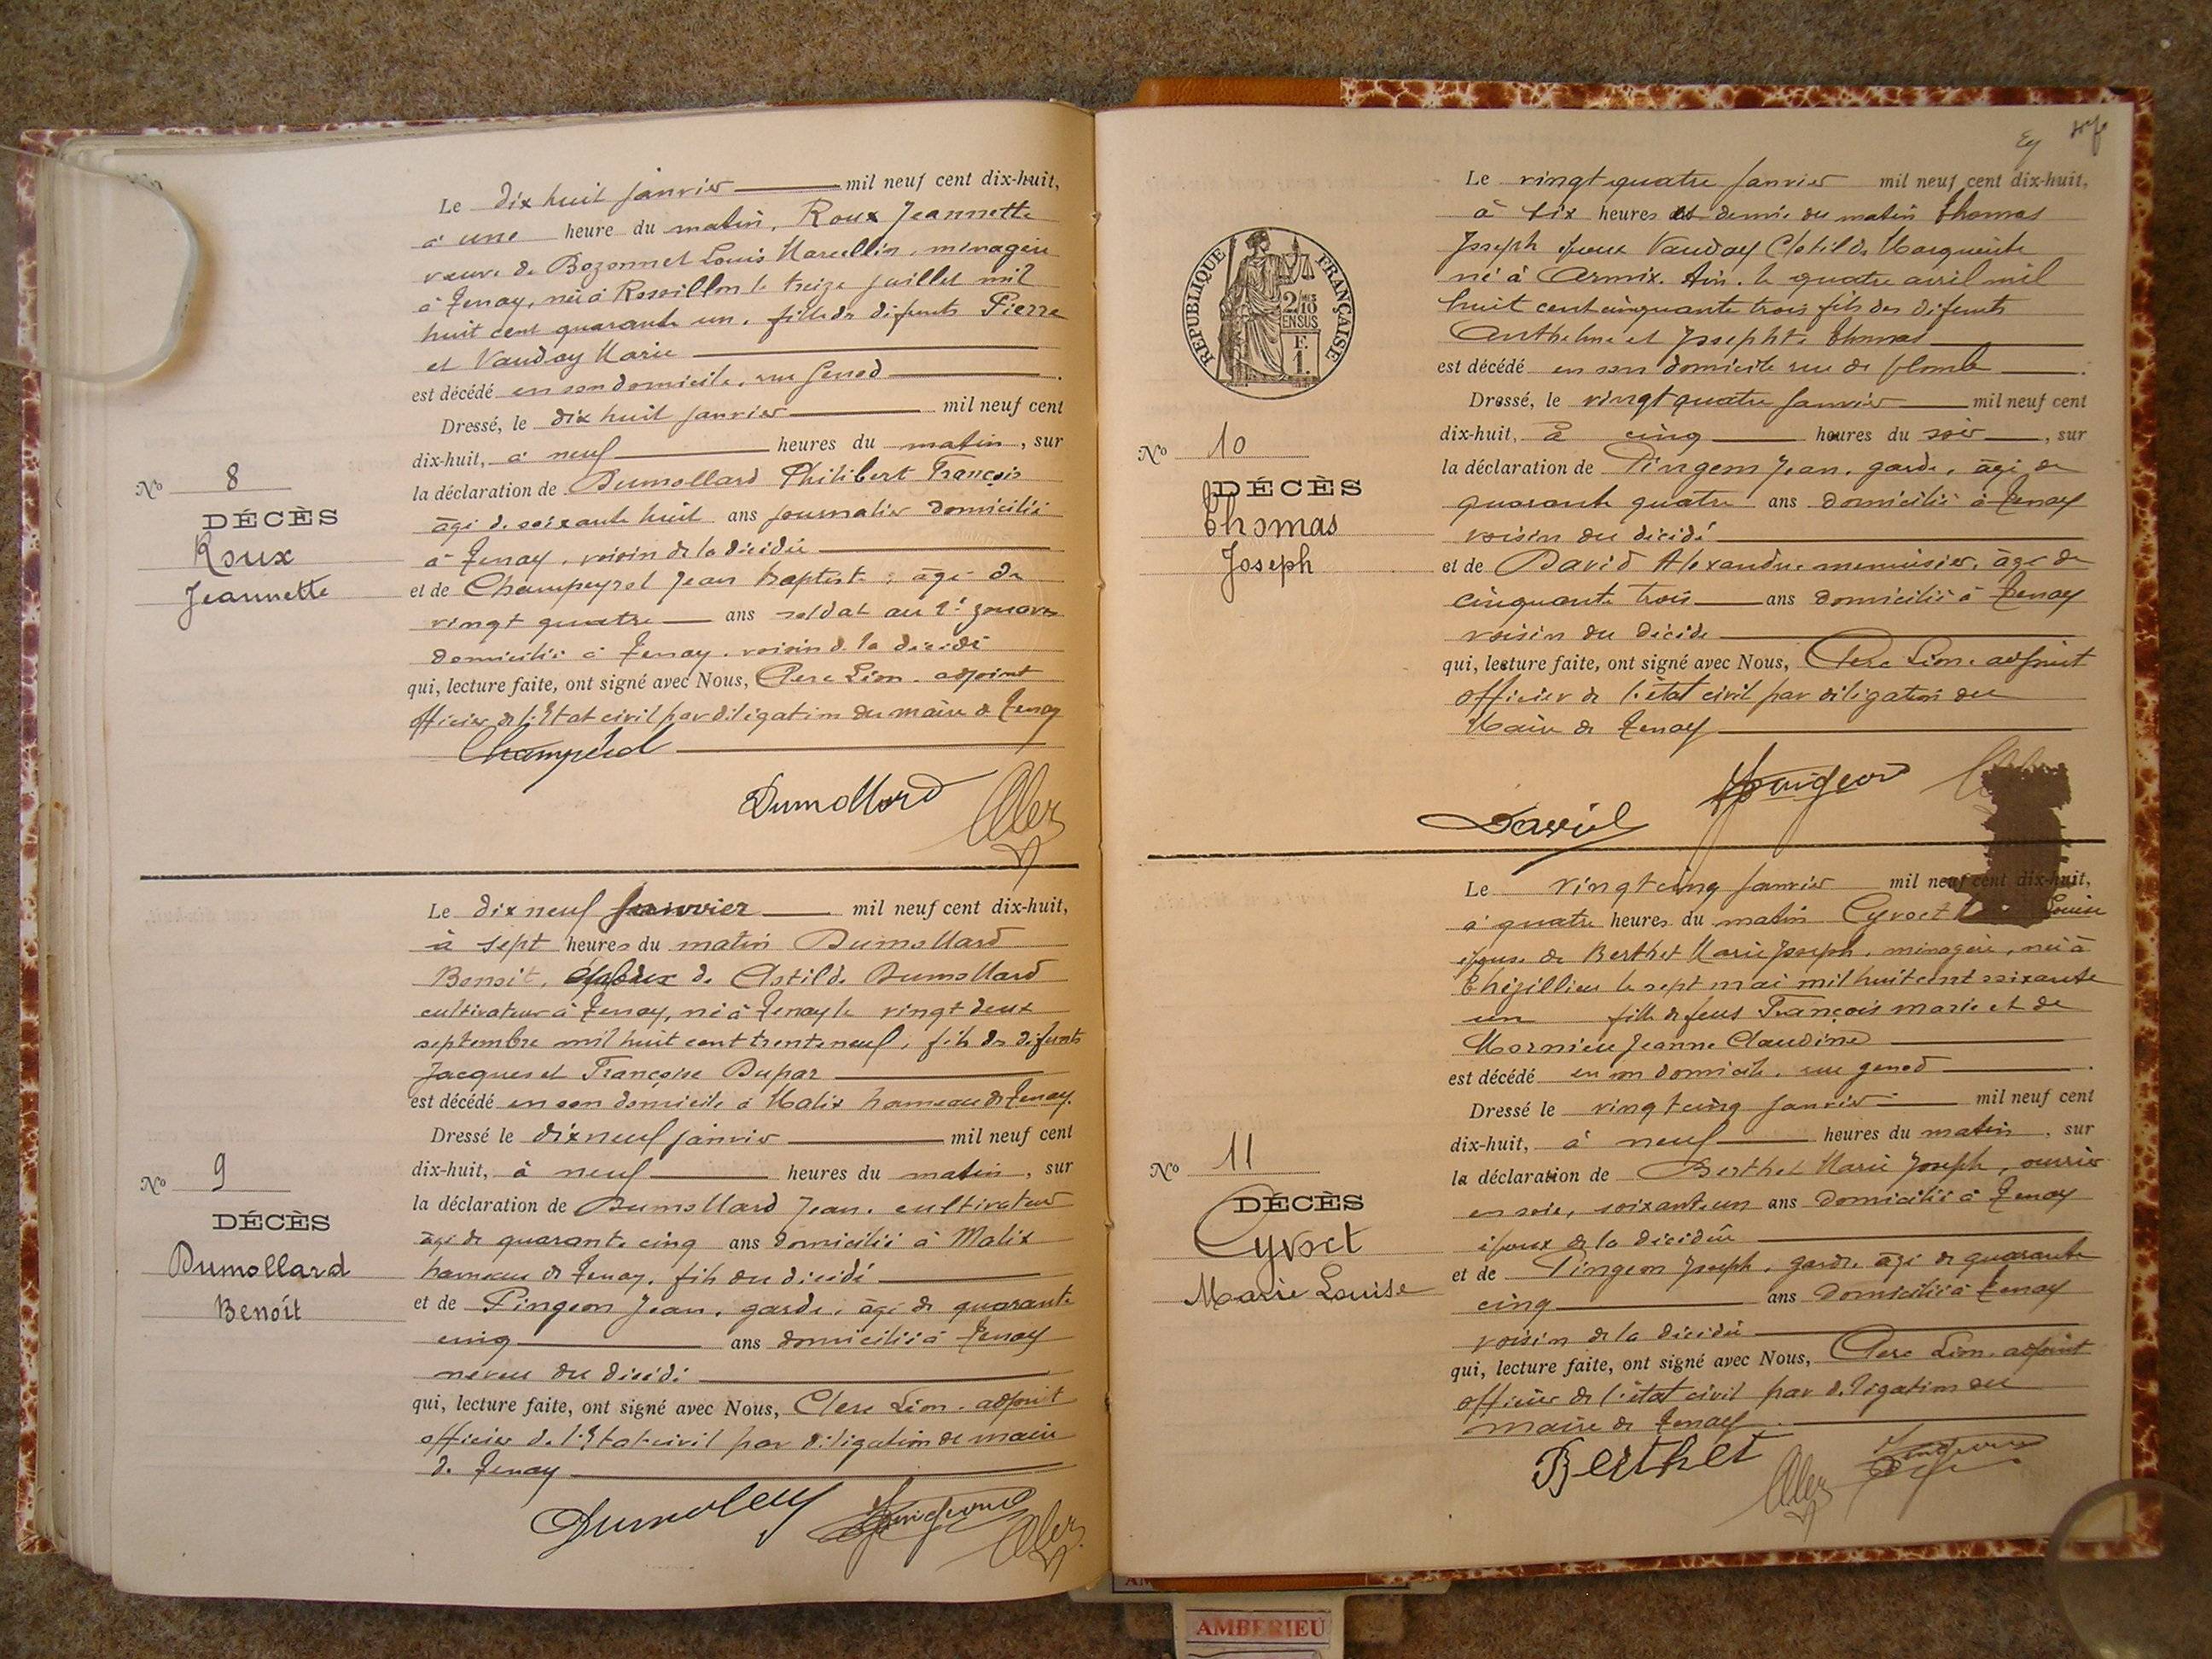 Le dix huit janvier mil neuf cent dix-huit,
à une heure du matin, Roux Jeannette
veuve de Bozonnet Louis Marcellin, ménagère
à Tenay, née à Rossillon le treize juillet mil
huit cent quarante un, fille de défunts Pierre
et Vauday Marie
est décédé en son domicile, rue Genod
Dressé, le dix huit janvier mil neuf cent
dix-huit, à neuf heures du matin, sur
la déclaration de Dumollard Philibert François
âgé de soixante huit ans journalier domicilié
à Tenay, voisin de la décédée
et de Champeyrol Jean Baptiste, âgé de
vingt quatre ans soldat au 2e zouaves
domicilié à Tenay, voisin de la décédé
qui, lecture faite, ont signé avec Nous, Clerc Léon, adjoint
officier de l'Etat civil par délégation du maire de Tenay
Dumollard
No 8
DÉCÈS
Roux
Jeannette
Le dix neuf janvier mil neuf cent dix-huit,
à sept heures du matin Dumollard
Benoit, époux de Clotilde Dumollard
cultivateur à Tenay, né à Tenay le vingt deux
septembre mil huit cent trente neuf, fils de défunts
Jacques et Françoise Dupar
est décédé en son domicile à Malix hameau de Tenay.
Dressé le dix neuf janvier mil neuf cent
dix-huit, à neuf heures du matin, sur
la déclaration de Dumollard Jean, cultivateur
âgé de quarante cinq ans domicilié à Malix
hameau de Tenay, fils du décédé
et de Pingeon Jean, garde, âgé de quarante
cinq ans domicilié à Tenay
neveu du décédé
qui, lecture faite, ont signé avec Nous, Clerc Léon, adjoint
officier de l'Etat-civil par délégation de maire
de Tenay
No 9
DÉCÈS
Dumollard
Benoît
Le vingt quatre janvier mil neuf cent dix-huit,
à six heures et demie du matin Thomas
Joseph époux Vauday Clotilde Marguerite
né à Armix, Ain, le quatre avril mil
huit cent cinquante trois fils des défunts
Anthelme et Josephte Thomas
est décédé en son domicile rue de plomb
Dressé, le vingt quatre janvier mil neuf cent
dix-huit, à cinq heures du soir, sur
la déclaration de Pingeon Jean, garde, âgé de
quarante quatre ans domicilié à Tenay
voisin du décédé
et de David Alexandre menuisier, âgé de
cinquante trois ans domicilié à Tenay
voisin du décédé
qui, lecture faite, ont signé avec Nous, Clerc Léon, adjoint
officier de l'état civil par délégation du
Maire de Tenay
David
RÉPUBLIQUE FRANÇAISE
2/10
EN SUS
F.
1.
No 10
DÉCÈS
Thomas
Joseph
Le vingt cinq janvier mil neuf cent dix-huit,
à quatre heures du matin Cyvoct Louise
épouse de Berthet Marie Joseph, ménagère, née à
Thézillieu le sept mai mil huit cent soixante
un fille de feus François Marie et de
Mornieu Jeanne Claudine
est décédé en son domicile, rue genod
Dressé le vingt cinq janvier mil neuf cent
dix-huit, à neuf heures du matin, sur
la déclaration de Berthet Marie Joseph, ouvrier
en soie, soixante un ans domicilié à Tenay
époux de la décédée
et de Pingeon Joseph, garde, âgé de quarante
cinq ans domicilié à Tenay
voisin de la décédée
qui, lecture faite, ont signé avec Nous, Clerc Léon, adjoint
officier de l'état civil par délégation du
maire de Tenay
Berthet
No 11
DÉCÈS
Cyvoct
Marie Louise
AMBERIEU